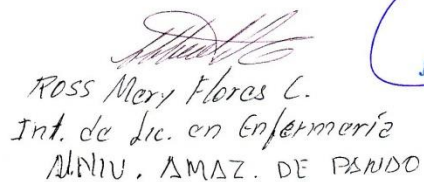 Ross Mery Flores C.
Int. de Lic. en Enfermería
UNIV. AMAZ. DE PANDO